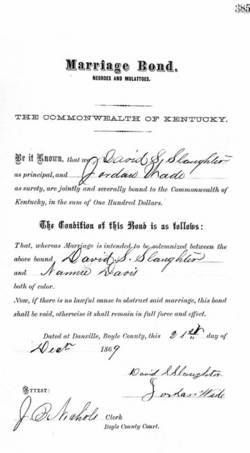 385
Marriage Bond.
NEGROES AND MULATTOES.
THE COMMONWEALTH OF KENTUCKY.
Be it Known, that we David S. Slaughter
as principal, and Jordan Wade
as surety, are jointly and severally bound to the Commonwealth of
Kentucky, in the sum of One Hundred Dollars.
The Condition of this Bond is as follows:
That, whereas Marriage is intended to be solemnized between the
above bound David S. Slaughter
and Nannie Davis
both of color.
Now, if there is no lawful cause to obstruct said marriage, this bond
shall be void, otherwise it shall remain in full force and effect.
Dated at Danville, Boyle County, this 21st day of
Dect 1869
David S Slaughter
Jordan Wade
ATTEST:
J. B. Nichols Clerk
Boyle County Court.